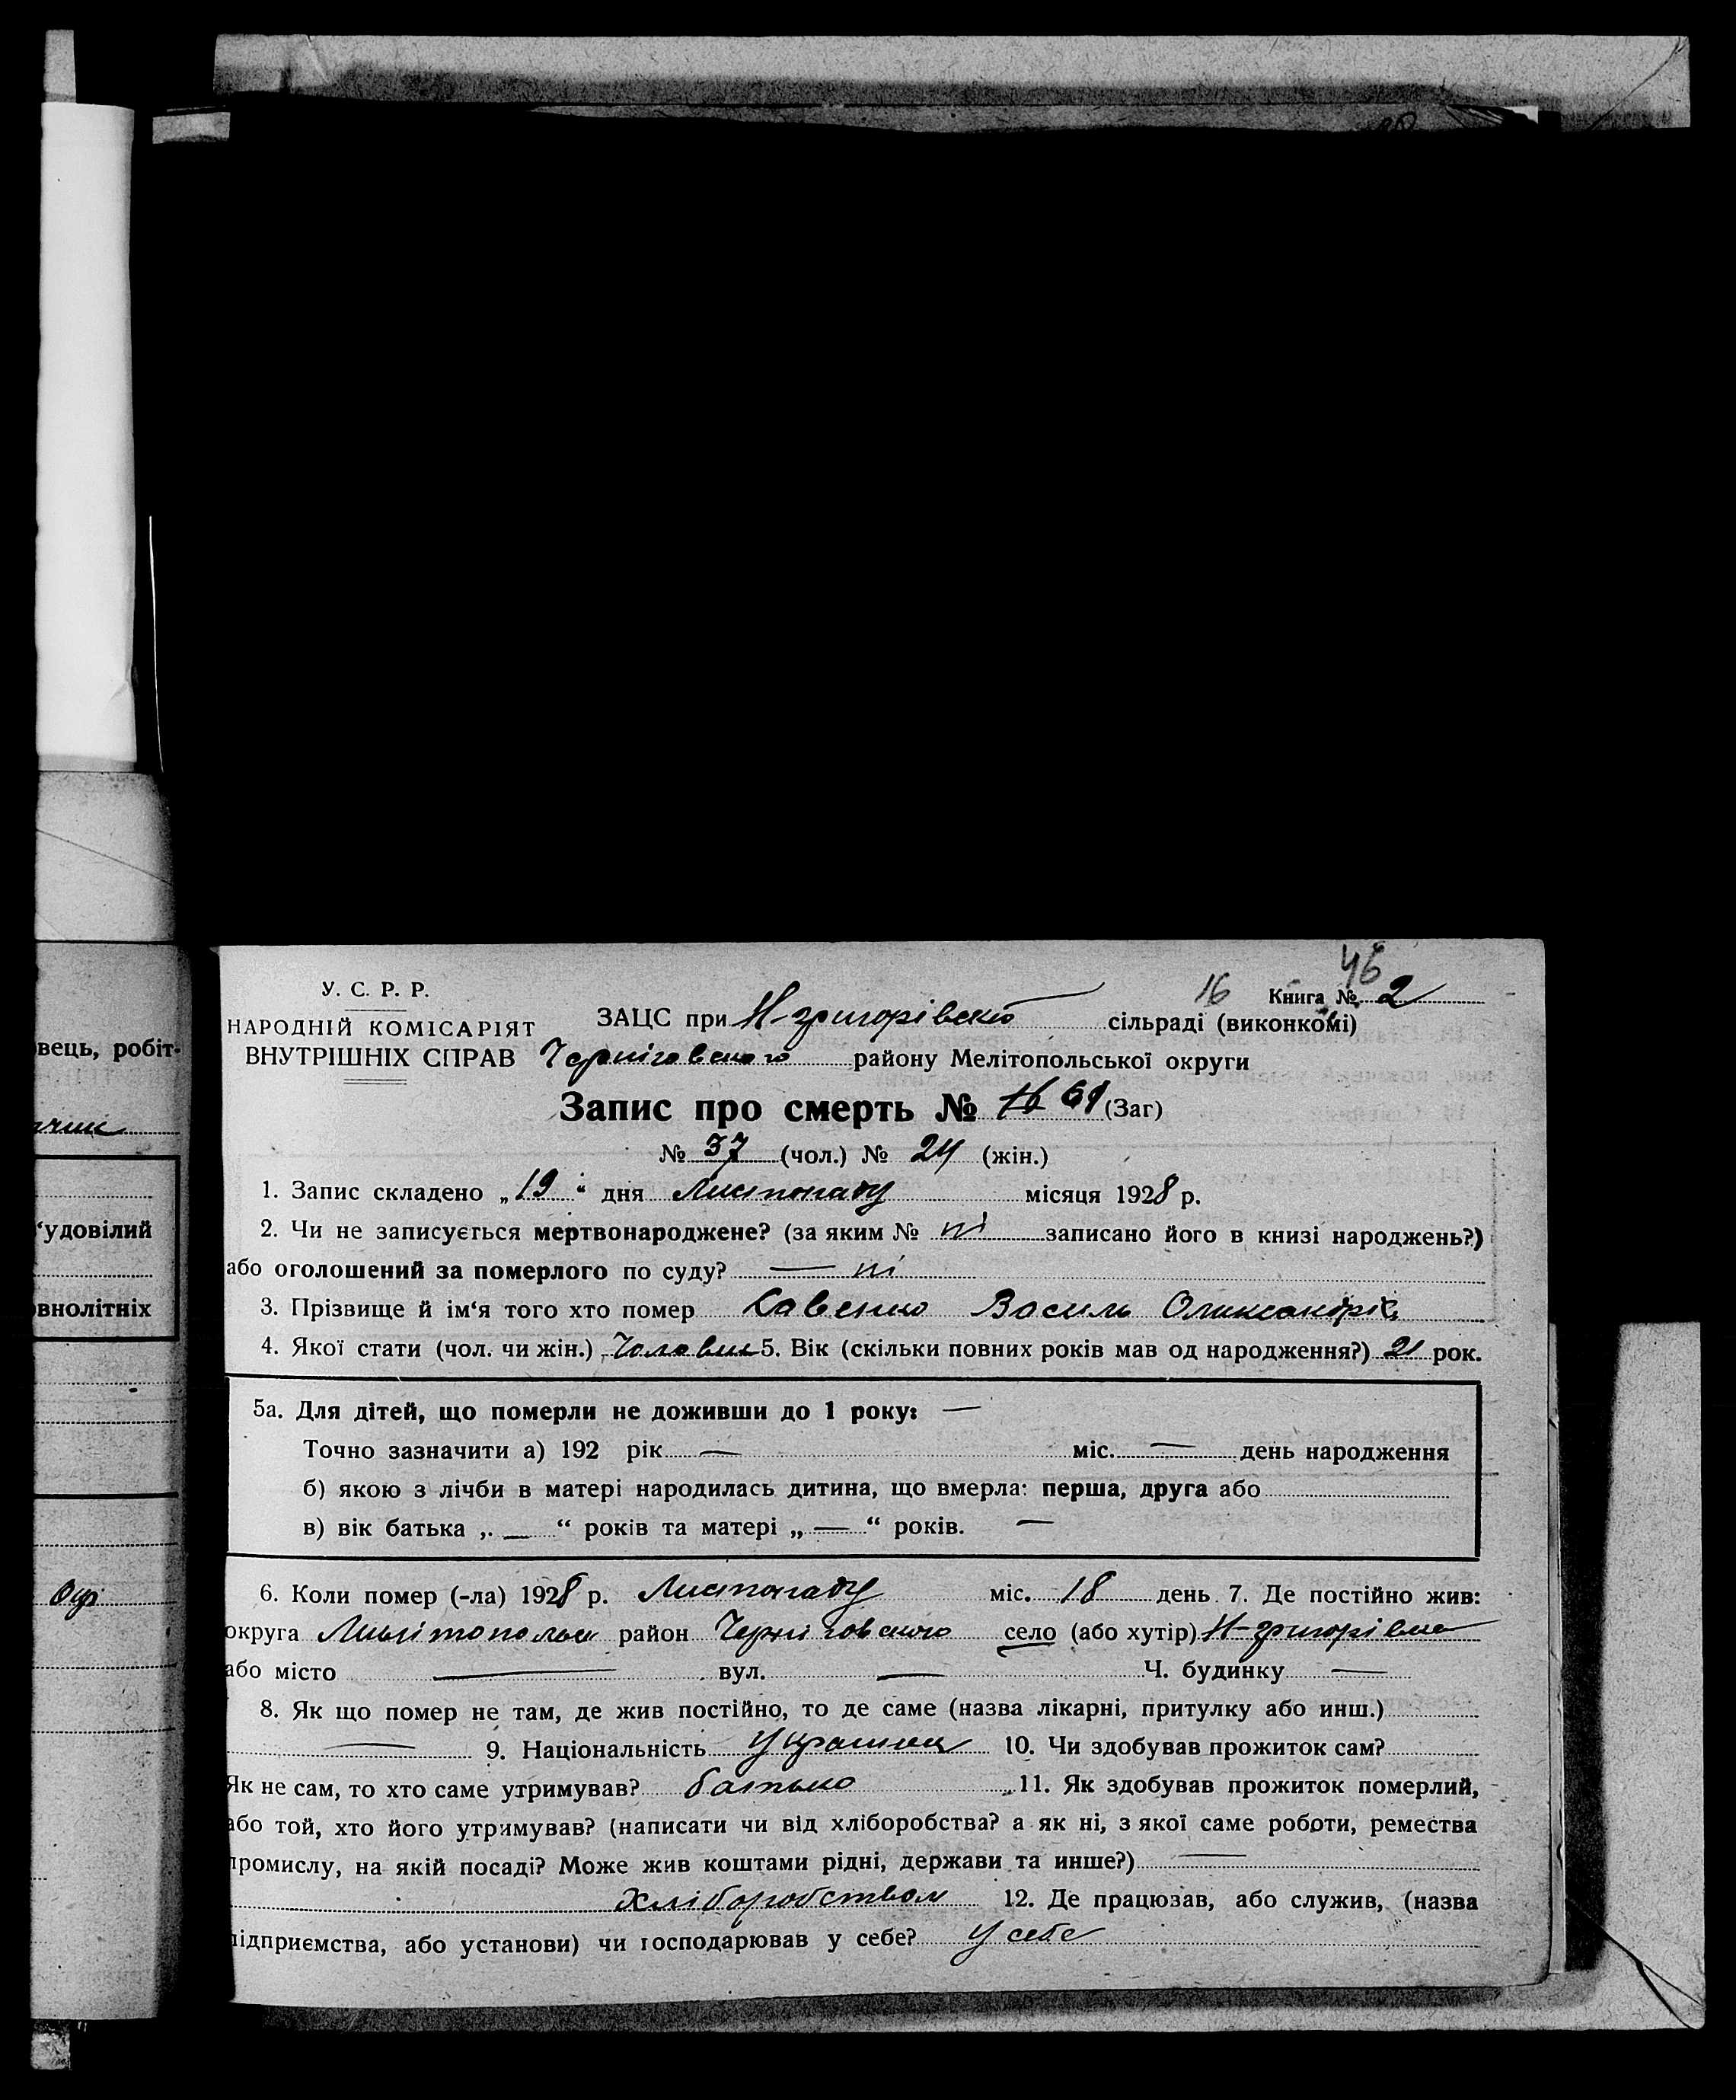 46
У. С. Р. Р.
16 Книга № 2
НАРОДНІЙ КОМІСАРІЯТ
ВНУТРІШНІХ СПРАВ
ЗАЦС при Н-григорівской сільраді (виконкомі)
Черніговського району Мелітопольської округи
Запис про смерть № 61 (Заг)
№ 37 (чол.) № 24 (жін.)
1. Запис складено „19“ дня Листопаду місяця 1928 р.
2. Чи не записується мертвонароджене? (за яким № ні записано його в книзі народжень?)
або оголошений за померлого по суду? — ні
3. Прізвище й ім‘я того хто помер Савенко Василь Олександрів
4. Якої стати (чол. чи жін.) Чоловик 5. Вік (скільки повних років мав од народження?) 21 рок.
5а. Для дітей, що померли не доживши до 1 року: —
Точно зазначити а) 192 рік — міс. — день народження
б) якою з лічби в матері народилась дитина, що вмерла: перша, друга або
в) вік батька „ — “ років та матері „ — “ років. —
6. Коли помер (-ла) 1928 р. Листопаду міс. 18 день 7. Де постійно жив:
округа район Черніговського село (або хутір) Н-григорівка
або місто — вул. — Ч. будинку —
8. Як що помер не там, де жив постійно, то де саме (назва лікарні, притулку або инш.)
— 9. Національність Украинец 10. Чи здобував прожиток сам?
Як не сам, то хто саме утримував? батько 11. Як здобував прожиток померлий,
або той, хто його утримував? (написати чи від хліборобства? а як ні, з якої саме роботи, ремества
промислу, на якій посаді? Може жив коштами рідні, держави та инше?) —
хліборобством 12. Де працював, або служив, (назва
підприємства, або установи) чи господарював у себе? У себе
вець, робіт-
удовілий
внолітніх